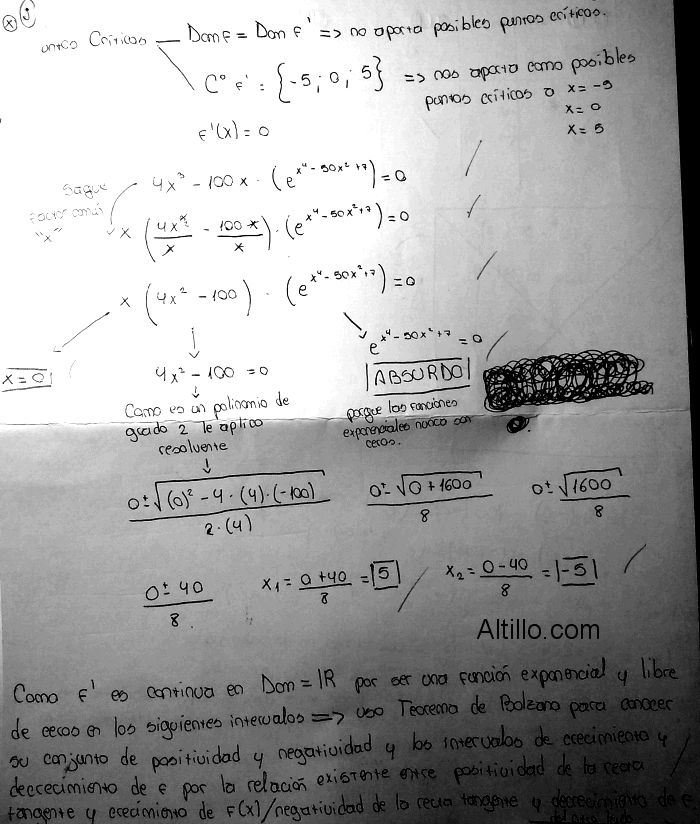 untos Críticos — Dom F = Dom F' => no aporta posibles puntos críticos.
C° F' : {-5 ; 0 ; 5} => nos aporta como posibles
puntos críticos a x = -5
x = 0
x = 5
F'(x) = 0
4x³ - 100x · (e^(x⁴ - 50x² + 7)) = 0
Saque
Factor común
"x"
x (4x³/x - 100x/x) · (e^(x⁴ - 50x² + 7)) = 0
x (4x² - 100) · (e^(x⁴ - 50x² + 7)) = 0
x = 0
4x² - 100 = 0
e^(x⁴ - 50x² + 7) = 0
ABSURDO
Como es un polinomio de
grado 2 le aplico
resolvente
porque las funciones
exponenciales nunca son
ceros.
0 ± √((0)² - 4 · (4) · (-100)) / 2 · (4)
0 ± √(0 + 1600) / 8
0 ± √1600 / 8
0 ± 40 / 8
x₁ = 0 + 40 / 8 = 5
x₂ = 0 - 40 / 8 = -5
Altillo.com
Como F' es continua en Dom = IR por ser una función exponencial y libre
de ceros en los siguientes intervalos => uso Teorema de Bolzano para conocer
su conjunto de positividad y negatividad y los intervalos de crecimiento y
decrecimiento de F por la relación existente entre positividad de la recta
tangente y crecimiento de F(x)/negatividad de la recta tangente y decrecimiento de F